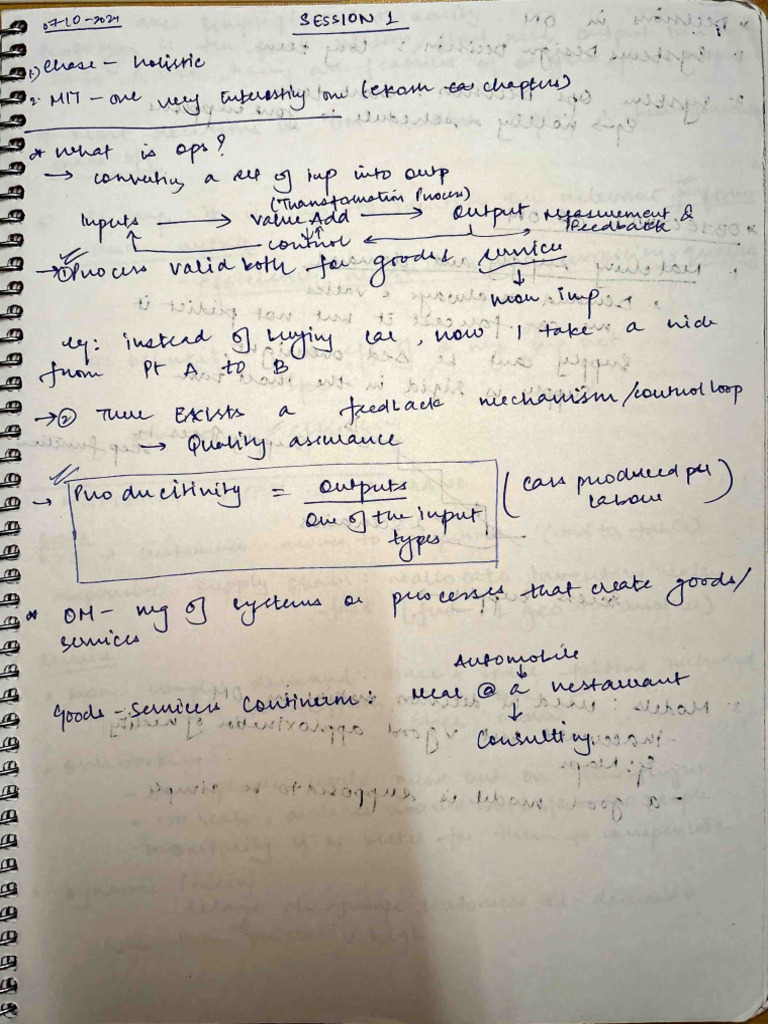 07-10-2024
SESSION 1
1) Chase - holistic
2. MIT - one very interesting one (ekam chapters)
* What is ops?
→ converting a set of inp into outp
(Transformation Process)
Inputs → Value Add → Output Measurement &
Feedback
control
→ ① Process valid both for goods & service
↓
more imp
eg: instead of buying car, now I take a ride
from Pt A to B
→ ② There EXISTS a feedback mechanism/control loop
→ Quality assurance
→ Producitinity = Outputs / One of the input types (Cars produced per labour)
* OM - mg of systems or processes that create goods/
services
Automobile
↓
Goods - Services Continuum: Meal @ a restaurant
↓
Consulting.